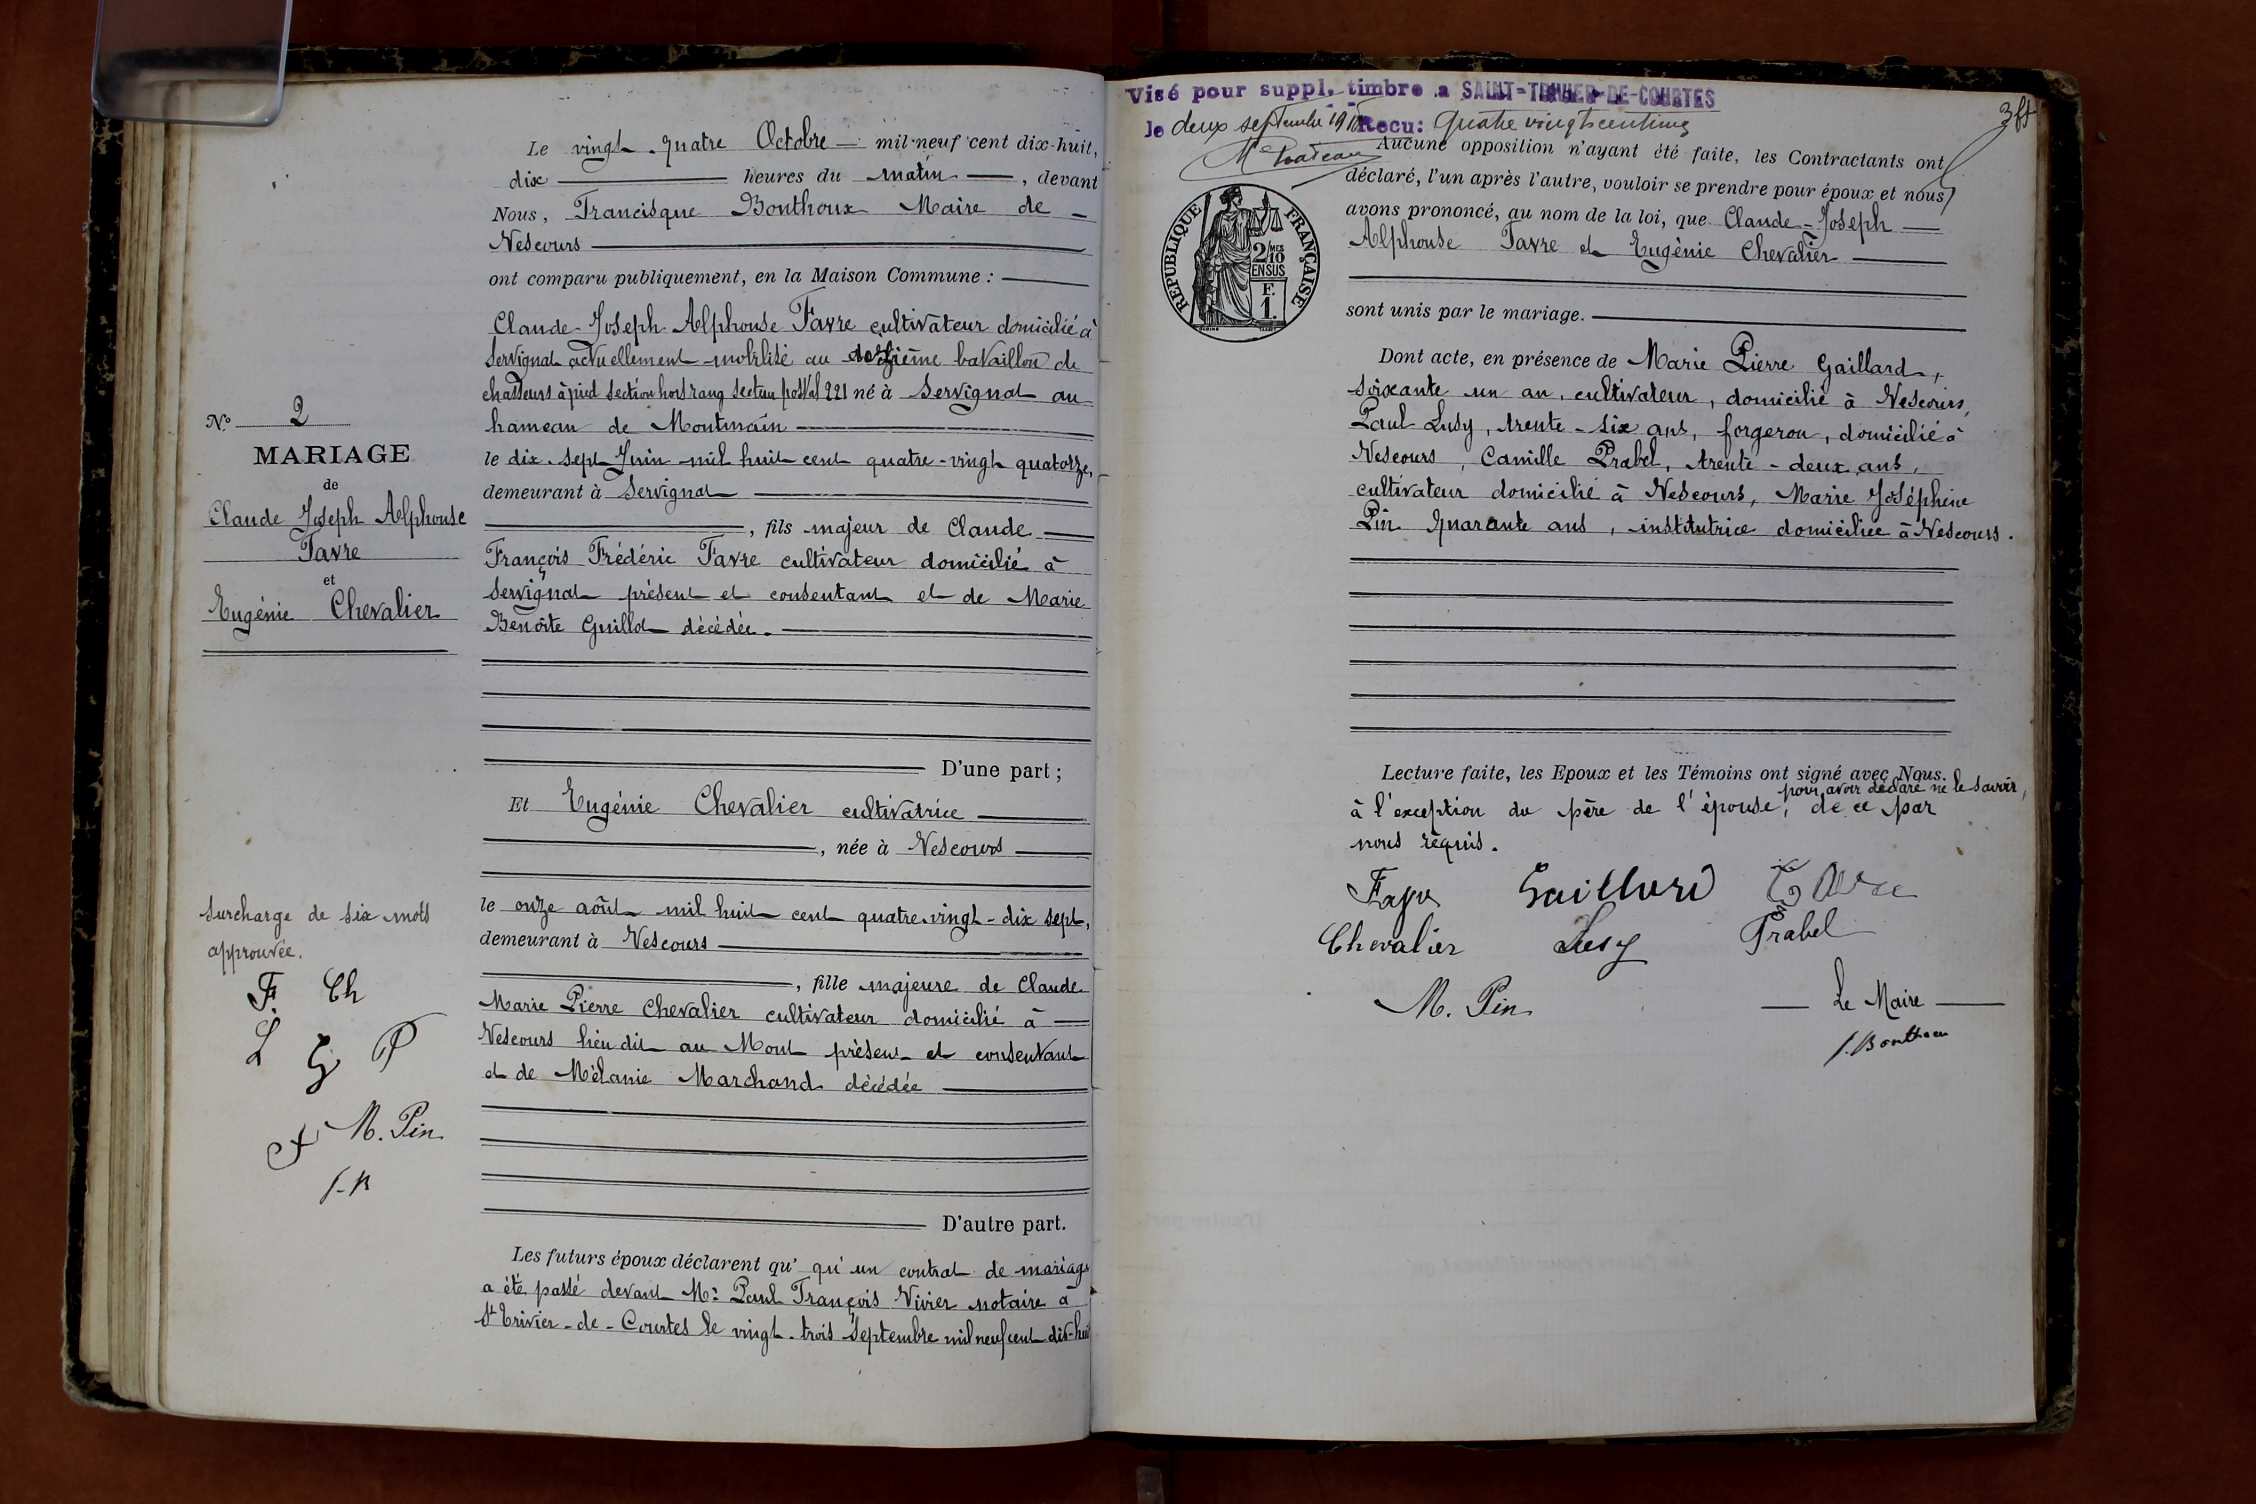 Le vingt-quatre Octobre mil-neuf cent dix-huit,
dix heures du matin, devant
Nous, Francisque Bonthoux Maire de
Vescours
ont comparu publiquement, en la Maison Commune :
Claude-Joseph-Alphonse Favre cultivateur domicilié à
Servignat actuellement mobilisé au bataillon de
chasseurs à pied section hors rang secteur postal 221 né à Servignat au
hameau de Montmain
le dix-sept Juin mil huit cent quatre-vingt quatorze,
demeurant à Servignat
, fils majeur de Claude
François Frédéric Favre cultivateur domicilié à
Servignat présent et consentant et de Marie
Benoîte Guillot décédée.
N.º 2
MARIAGE
de
Claude Joseph Alphonse
Favre
et
Eugénie Chevalier
D'une part ;
Et Eugénie Chevalier cultivatrice
, née à Vescours
le onze août mil huit cent quatre-vingt-dix sept,
demeurant à Vescours
, fille majeure de Claude
Marie Pierre Chevalier cultivateur domicilié à
Vescours lieu dit au Mont présent et consentant
et de Mélanie Marchand décédée
D'autre part.
Surcharge de six mots
approuvée.
F. Ch
L G P
F M. Pin
f. B
Les futurs époux déclarent qu' qu'un contrat de mariage
a été passé devant Me Paul François Vivier notaire à
St Trivier-de-Courtes le vingt-trois Septembre mil neuf cent dix-huit
Visé pour suppl. timbre a SAINT-TRIVIER-DE-COURTES
le deux septembre 1918 Recu: quatre vingt centimes
Aucune opposition n'ayant été faite, les Contractants ont
déclaré, l'un après l'autre, vouloir se prendre pour époux et nous
avons prononcé, au nom de la loi, que Claude-Joseph
Alphonse Favre et Eugénie Chevalier
REPUBLIQUE FRANÇAISE
2/10 MES
EN SUS
F.
1.
sont unis par le mariage.
Dont acte, en présence de Marie Pierre Gaillard,
soixante un an, cultivateur, domicilié à Vescours,
Paul Lusy, trente-six ans, forgeron, domicilié à
Vescours, Camille Prabel, trente-deux ans,
cultivateur domicilié à Vescours, Marie Joséphine
Pin quarante ans, institutrice domiciliée à Vescours.
Lecture faite, les Epoux et les Témoins ont signé avec Nous.
pour avoir déclaré ne le savoir,
à l'exception du père de l'épouse, de ce par
nous requis.
Favre Gaillard Favre
Chevalier Lusy Prabel
M. Pin Le Maire
f. Bonthoux